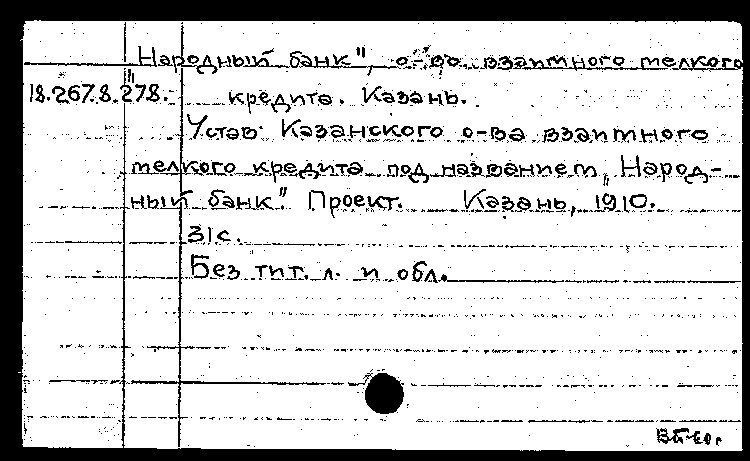 "Народный банк", о-во взаимного мелкого
18.267.8.278. кредита. Казань.
Устав Казанского о-ва взаимного
мелкого кредита под названием "Народ-
ный банк". Проект. Казань, 1910.
31с.
Без тит. л. и обл.